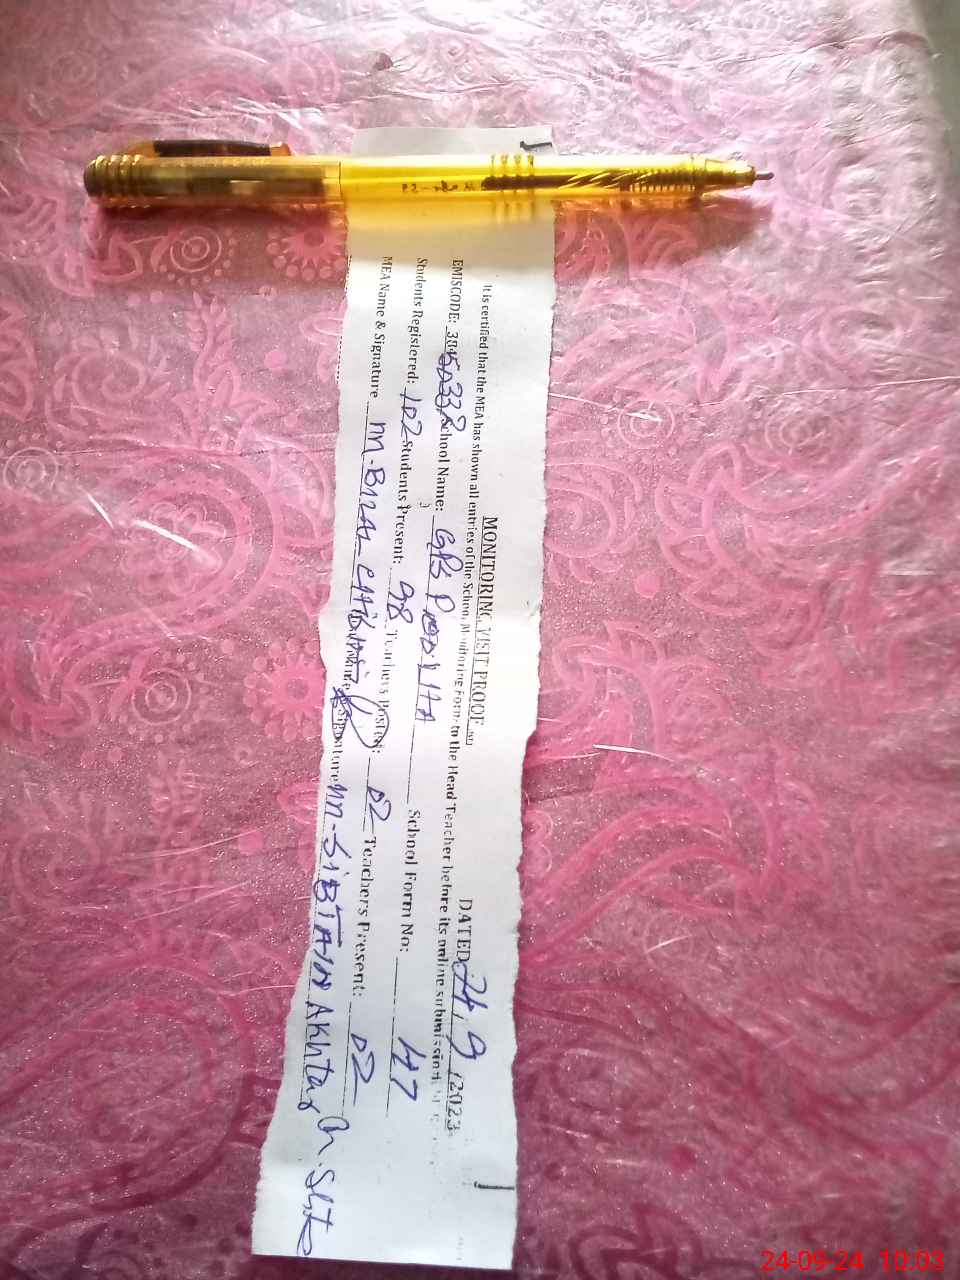 MONITORING VISIT PROOF DATED 24, 9 /2023
It is certified that the MEA has shown all entries of the School Monitoring Form to the Head Teacher before its online submission
EMISCODE: School Name: GPS School Form No: 47
Students Registered: 102 Students Present: 98 Teachers Posted: 02 Teachers Present: 02
MEA Name & Signature M. BILAL Signature M-SIBTAIN Akhtar
24-09-24 10:03